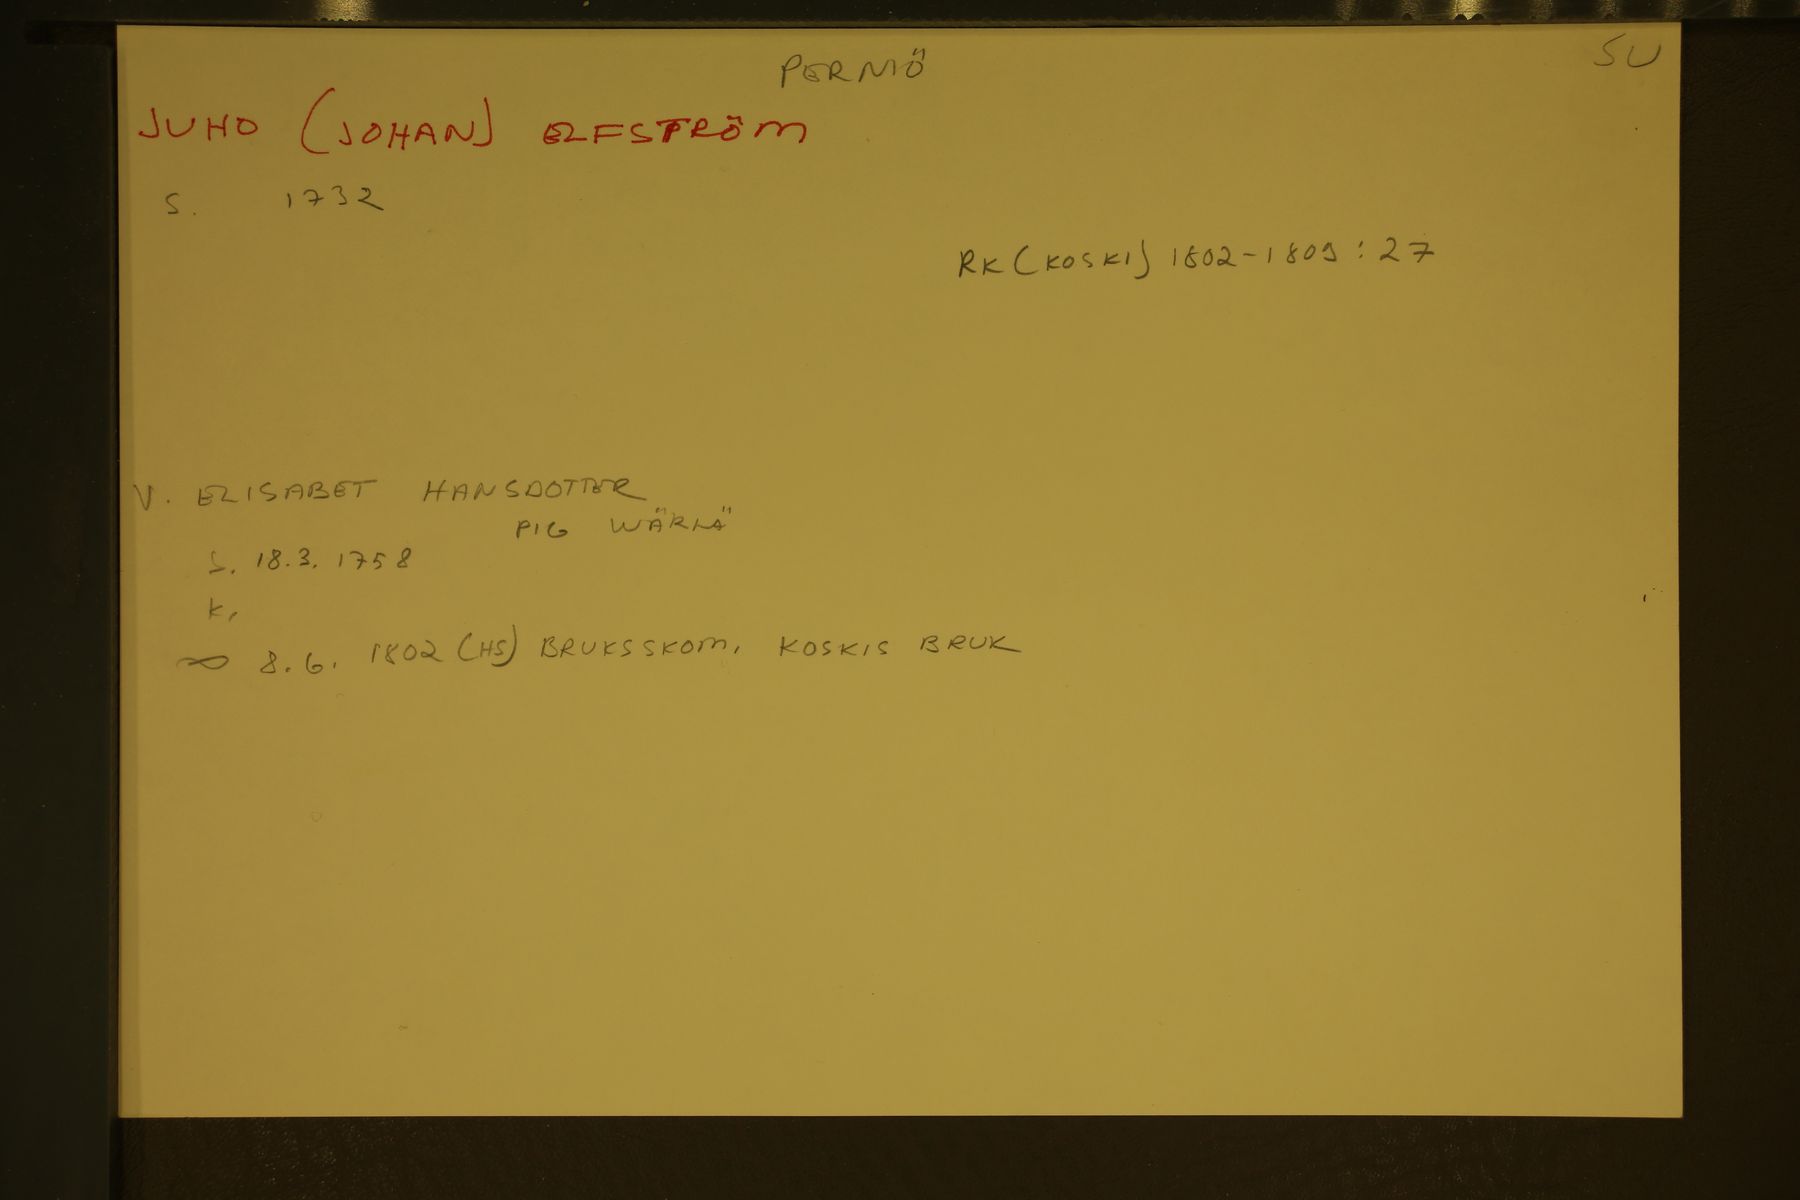 PERNIÖ
SU
JUHO (JOHAN) ELFSTRÖM
S. 1732
RK (KOSKI) 1802-1809:27
V. ELISABET HANSDOTTER
PIG WÄRLÄ
S. 18.3. 1758
K.
∞ 8.6. 1802 (HS) BRUKSSKOM. KOSKIS BRUK